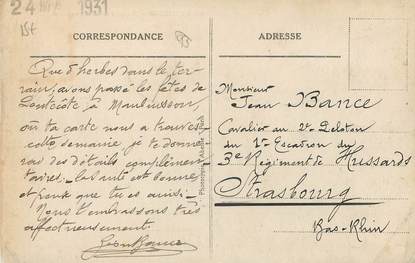 24 1931
15t
CORRESPONDANCE
ADRESSE
Que d'herbes dans le ter-
rain; avons passé les fêtes de
Pentecôte à Maubuisson,
où ta carte nous a trouvés
cette semaine, je te donne-
rai des détails complémen-
taires. La santé est bonne
et que tu es ainsi.
Nous t'embrassons très
affectueusement.
Monsieur
Jean Bance
Cavalier au 2e Peloton
du 1er Escadron du
3e Régiment de Hussards
Strasbourg
Bas-Rhin